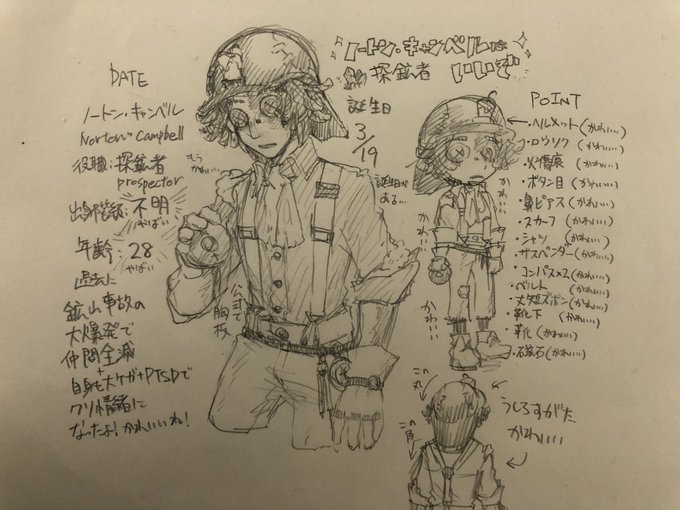 DATE
ノートン・キャンベル
Norton Campbell
役職:探鉱者
prospector
出身階級:不明
やばい
年齢:28
やばい
過去に
鉱山事故の
大爆発で
仲間全滅
+
自身も大ケガ+PTSDで
クソ情緒に
なったよ!かわいいね!
もう
かわいい…
公式で
胸板
ノートン・キャンベルは
探鉱者 いいぞ
誕生日
3/19
誕生日が
ある…
POINT
・ヘルメット(かわいい)
・ロウソク(かわいい)
・火傷痕(かわいい)
・ボタン目(かわいい)
・鼻ピアス(かわいい)
・スカーフ(かわいい)
・シャツ(かわいい)
・サスペンダー(かわいい)
・コンパス×2(かわいい)
・ベルト(かわいい)
・丈短ズボン(かわいい)
・靴下(かわいい)
・靴(かわいい)
・磁石(かわいい)
かわいい
かわいい
かわいい
かわいい
この丸
この角
うしろすがた
かわいい